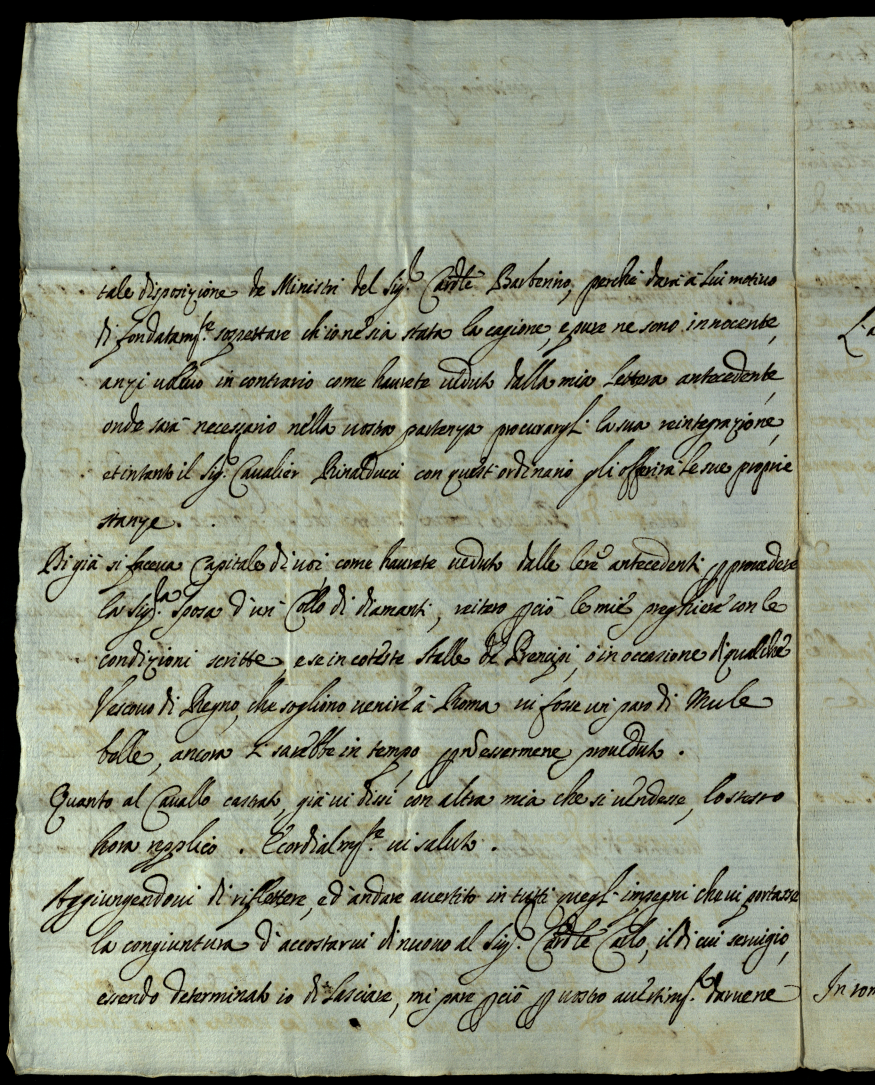 tale disposizione de Ministri del Sig.r Cardle Barberino, perche darà à lui motivo
di fondatamte sospettare ch'io ne sia stata la cagione, e pure ne sono innocente,
anzi in contrario come haurete veduto dalla mia lettera antecedente,
onde sarà necessario nella vostra partenza procurargl. la sua reintegrazione,
et intanto il Sig.r Cavalier Rinalducci con quest'ordinario gli offerirà le sue proprie
stanze.
Di già si faceva Capitale di voi, come haurete veduto dalle lere antecedenti p provedere
la Sig.ra sposa d'un Collo di diamanti, reitero p ciò le mie preghiere con le
condizioni scritte, e se in coteste stalle de Prencipi, ò in occasione di qualche
Vescovo di Regno, che sogliono venire à Roma vi fosse un paro di Mule
belle, ancora sarebbe in tempo p essermene proveduto.
Quanto al Cavallo castrato, già vi dissi con altra mia che si vendesse, lo stesso
hora replico. E cordialmte vi saluto.
Aggiungendovi di riflettere, ed andare avertito in tutti quegl. impegni che vi portasse
la congiuntura d'accostarvi di nuovo al Sig.r Cardle Carlo, il di cui servigio,
essendo determinato io di lasciare, mi pare p ciò p vostro avertimto darvene
In rom